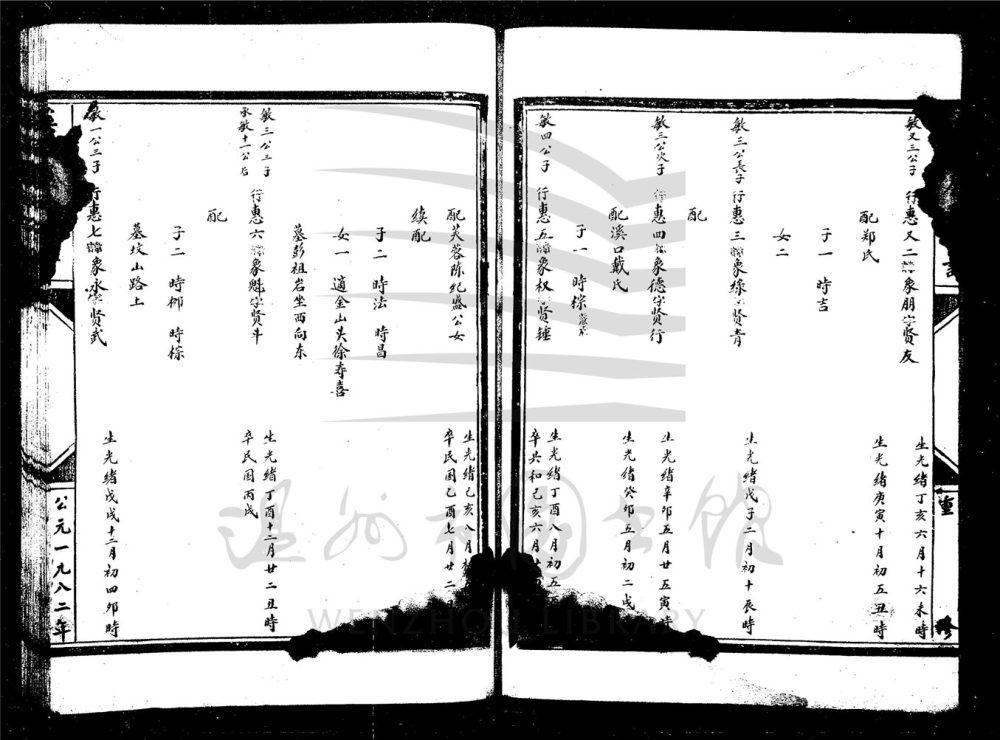 敏又三公子 行惠又二 象朋字贤友
生光绪丁亥六月十六未時
配郑氏
生光绪庚寅十月初五丑時
子一 時吉
女二
敏三公長子 行惠三 象绿 贤青
生光绪戊子二月初十辰時
配
敏三公次子 行惠四 象德字贤行
生光绪辛卯五月廿五寅時
配溪口戴氏
生光绪癸卯五月初二戌
子一 時棕
敏四公子 行惠五 象权 贤锤
生光绪丁酉八月初五
卒共和己亥六月廿
配芙蓉陈纪盛公女
生光绪己亥八月
卒民国己酉七月廿二
续配
子二 時法 時昌
女一 適金山头徐寿喜
墓彭祖岩坐西向东
敏三公三子
承敏十一公后
行惠六 象魁字贤斗
生光绪丁酉十二月廿二丑時
卒民国丙戌
配
子二 時柳 時棕
墓坟山路上
敏一公三子 行惠七 象永字贤武
生光绪戊戌十二月初四卯時
重修
公元一九八二年
温州市图书馆
WENZHOU LIBRARY